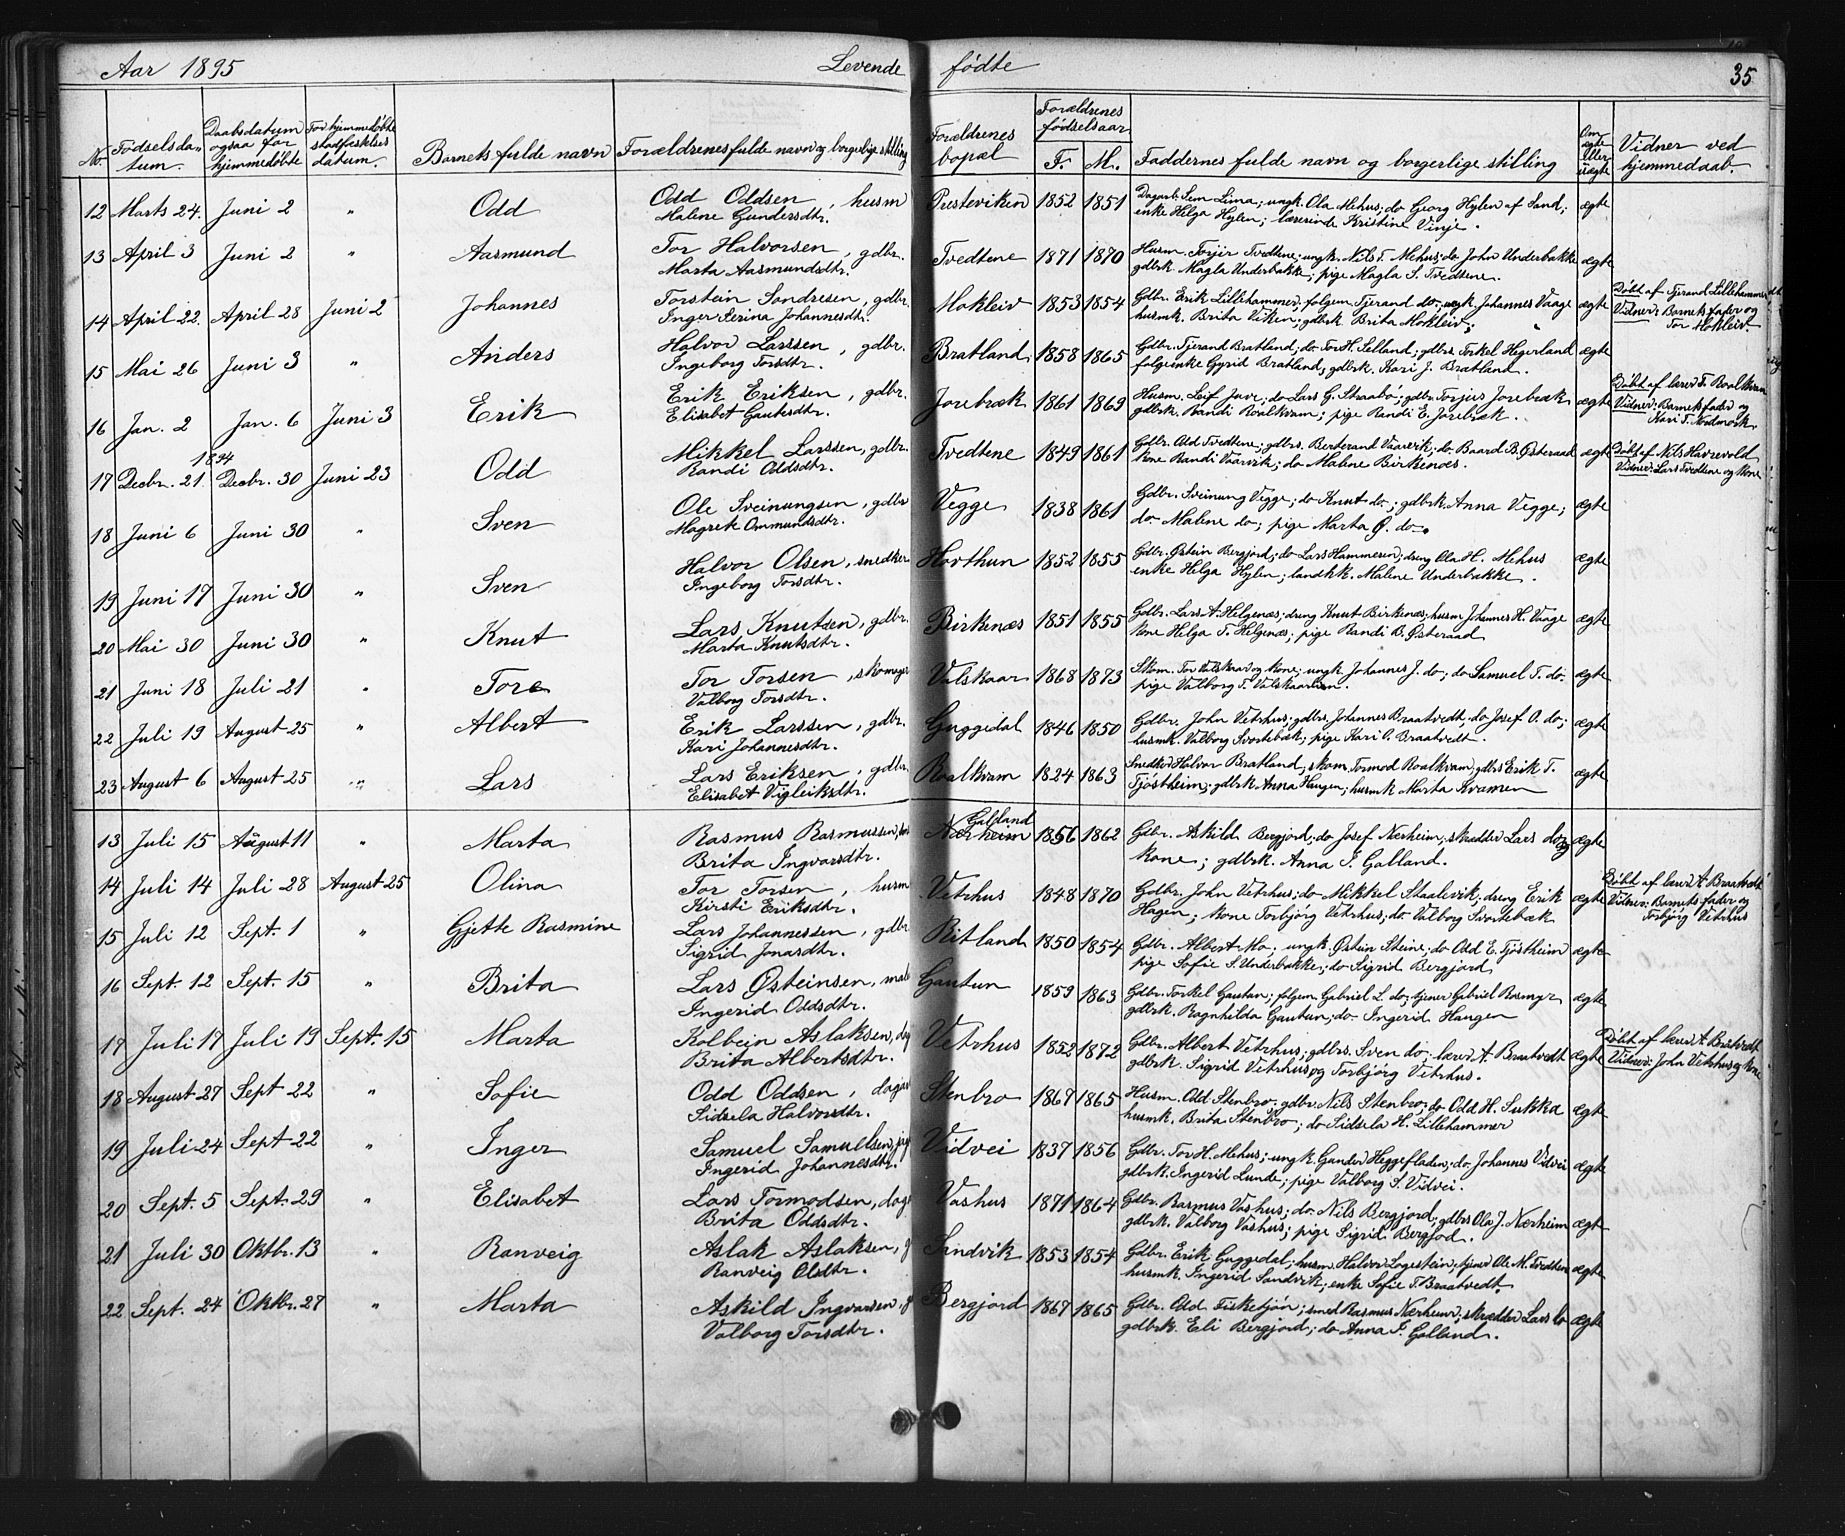 Aar 1895 Levende fødte 35
No. Fødselsdatum. Daabsdatum ogsaa for hjemmedøbte For hjemmedøbte stadfæstelses datum. Barnets fulde navn Forældrenes fulde navn og borgerlige stilling Forældrenes bopæl Forældrenes fødselsaar F. M. Faddernes fulde navn og borgerlige stilling Om ægte eller uægte Vidner ved hjemmedaab.
12 Marts 24. Juni 2 " Odd Odd Oddsen, husm Presteviken 1852 1851 Dagarb. Sem Lima; ungk. Ola Mehus; do Georg Hylen af Sand; ægte
Malene Gundersdtr. enke Helga Hylen; lærerinde Kristine Vinje.
13 April 3 Juni 2 " Aasmund Tor Halvorsen, gdbr. Tvedtene 1871 1870 Husm. Torjer Tvedtene; ungk. Nils T. Mehus; do John Underbakke ægte
Marta Aasmundsdtr. gdbrk Magla Underbakke; pige Magla S. Tvedtene.
14 April 22. April 28 Juni 2 Johannes Torstein Sondresen, gdbr. Mokleiv 1853 1854 Gdbr. Erik Lillehammer; folgem. Tjerand do; ungk. Johannes Vaage ægte Døbt af Tjerand Lillehammer
Inger Serina Johannesdtr. husmk. Brita Viken; gdbrk Brita Mokleiv. Vidner: Barnets fader og
Tor Mokleiv
15 Mai 26 Juni 3 " Anders Halvor Larssen, gdbr. Bratland 1858 1865 Gdbr. Tjerand Bratland; do Tor H. Selland; gdbrs Torkel Hegerland ægte
Ingeborg Torsdtr. folgenke Gyrid Bratland; gdbrk. Kari J. Bratland.
16 Jan. 2 Jan. 6 Juni 3 Erik Erik Eriksen, gdbr. Jorebræk 1861 1869 Husm. Leif Juvr; do Lars G. Straabø; gdbr Torjus Jorebræk ægte Døbt af lærer T. Roalkvam
Elisabet Gautesdtr. gdbrk. Randi Roalkvam; pige Randi E. Jorebræk. Vidner: Barnets fader og
Kari T. Nordmork
1894
17 Decbr. 21 Decbr. 30 Juni 23 Odd Mikkel Larssen, gdbr. Tvedtene 1849 1861 Gdbr. Odd Tvedtene; gdbrs. Berderand Vaarvik; do. Baard B. Østeraad ægte Døbt af Nils Havrevold
Randi Oddsdtr. kone Randi Vaarvik; do Malene Birkenæs. Vidner: Lars Tvedtene og kone
18 Juni 6 Juni 30 " Sven Ole Sveinungsen, gdbr Vegge 1838 1861 Gdbr. Sveinung Vegge; do Knut do; gdbrk. Anna Vegge; ægte
Magrete Ommundsdtr. do Malene do; pige Marta Ø. do.
19 Juni 17 Juni 30 " Sven Halvor Olsen, snedker Horthun 1852 1855 Gdbr. Østein Bergjord; do Lars Hammersen; dreng Ola H. Mehus ægte
Ingeborg Torsdtr. enke Helga Hylen; landhk. Malene Underbakke.
20 Mai 30 Juni 30 " Knut Lars Knutsen, gdbr. Birknæs 1851 1855 Gdbr. Lars A. Helgenæs; dreng Knut Birkenæs; husm Johannes H. Vaage ægte
Marta Knutsdtr. kone Helga T. Helgenæs; pige Randi B. Østeraad
21 Juni 18 Juli 21 " Tore Tor Torsen, skomager Valskaar 1868 1873 Skom. Tor Valskaar og kone; ungk. Johannes J. do; do Samuel T. do. ægte
Valborg Torsdtr. pige Valborg T. Valskaar.
22 Juli 19 August 25 " Albert Erik Larssen, gdbr. Guggedal 1846 1850 Gdbr. John Vetrhus; gdbrs. Johannes Braatvedt; do Josef O. do; ægte
Kari Johannesdtr. husmk. Valborg Svortebæk; pige Kari O. Braatvedt.
23 August 6 August 25 " Lars Lars Eriksen, gdbr. Roalkvam 1824 1863 Snedker Halvor Bratland; skom. Tormod Roalkvam; gdbrs Erik T. ægte
Elisabet Vigleiksdtr. Tjøstheim; gdbrk Anna Haugen; husmk Marta Kvamen
13 Juli 15 August 11 " Marta Rasmus Rasmussen, Nærheim Galland 1856 1862 Gdbr. Askild Bergjord; do Josef Nærheim; skrædder Lars do og ægte
Brita Ingvarsdtr. kone; gdbrk. Anna I. Galland.
14 Juli 14 Juli 28 August 25 Olina Tor Torsen, husm Vetrhus 1848 1870 Gdbr. John Vetrhus; do Mikkel Staalevik; dreng Erik ægte Døbt af lærer A. Braatvedt
Kirsti Eriksdtr. Hagen; kone Torbjørg Vetrhus; do Valborg Svortebæk Vidner: Barnets fader og
Torbjørg Vetrhus
15 Juli 12 Sept. 1 " Gjette Rasmine Lars Johannessen, gdbr Ritland 1850 1854 Gdbr. Albert Mo; ungk. Østein Steine; do Odd E. Tjøstheim ægte
Sigrid Jonasdtr. pige Sofie S. Underbakke; do Sigrid Bergjord
16 Sept. 12 Sept. 15 " Brita Lars Østeinsen, male Gautun 1859 1863 Gdbr. Torkel Gautun; folgem. Gabriel L. do; tjener Gabriel Rosmyr ægte
Ingerid Oddsdtr. gdbrk. Ragnhilda Gautun; do. Ingerid Haugen
17 Juli 17 Juli 19 Sept. 15 Marta Kolbein Aslaksen, dag Vetrhus 1852 1872 Gdbr. Albert Vetrhus; gdbrs. Sven do; lærer A. Braatvedt ægte Døbt af lærer A. Braatvedt
Brita Albertsdtr. gdbrk. Sigrid Vetrhus og Torbjørg Vetrhus. Vidner: John Vetrhus og kone
18 August 27 Sept 22 " Sofie Odd Oddsen, dagar Stenbro 1867 1865 Husm. Odd Stenbro; gdbr. Nils Stenbro; do Odd H. Sukka ægte
Sidsela Halvorsdtr. husmk. Brita Stenbro; do Sidsela H. Lillehammer
19 Juli 24 Sept 22 " Inger Samuel Samuelsen, Vidvei 1837 1856 Gdbr. Tor H. Mehus; ungk. Gunder Heggefladen; do Johannes Vidvei ægte
Ingerid Johannesdtr. gdbrk. Ingerid Lunde; pige Valborg S. Vidvei.
20 Sept. 5 Sept. 29 " Elisabet Lars Tormodsen, dag Vashus 1871 1864 Gdbr. Rasmus Vashus; do. Nils Bergjord; gdbrs Ola J. Nærheim ægte
Brita Oddsdtr. gdbrk. Valborg Vashus; pige Sigrid Bergjod.
21 Juli 30 Oktbr. 13 " Ranveig Aslak Aslaksen, g Sandvik 1853 1854 Gdbr. Erik Guggedal; husm. Halvor Logestein; tjener Ole M. Tvedtene ægte
Ranveig Olsdtr. husmk. Ingerid Sandvik; enke Sofie T. Braatvedt.
22 Sept. 24 Oktbr. 27 " Marta Askild Ingvarsen, g Bergjord 1867 1865 Gdbr. Odd Fisketjøn; smed Rasmus Nærheim; skrædder Lars do ægte
Valborg Torsdtr. gdbrk. Eli Bergjord; do Anna I. Galland.